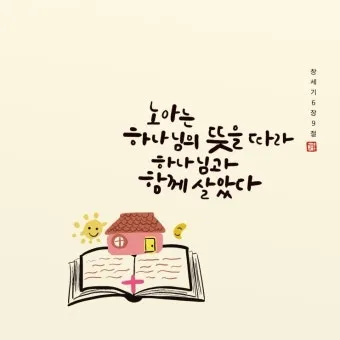 노아는
하나님의 뜻을 따라
하나님과
함께 살았다
창세기6장9절